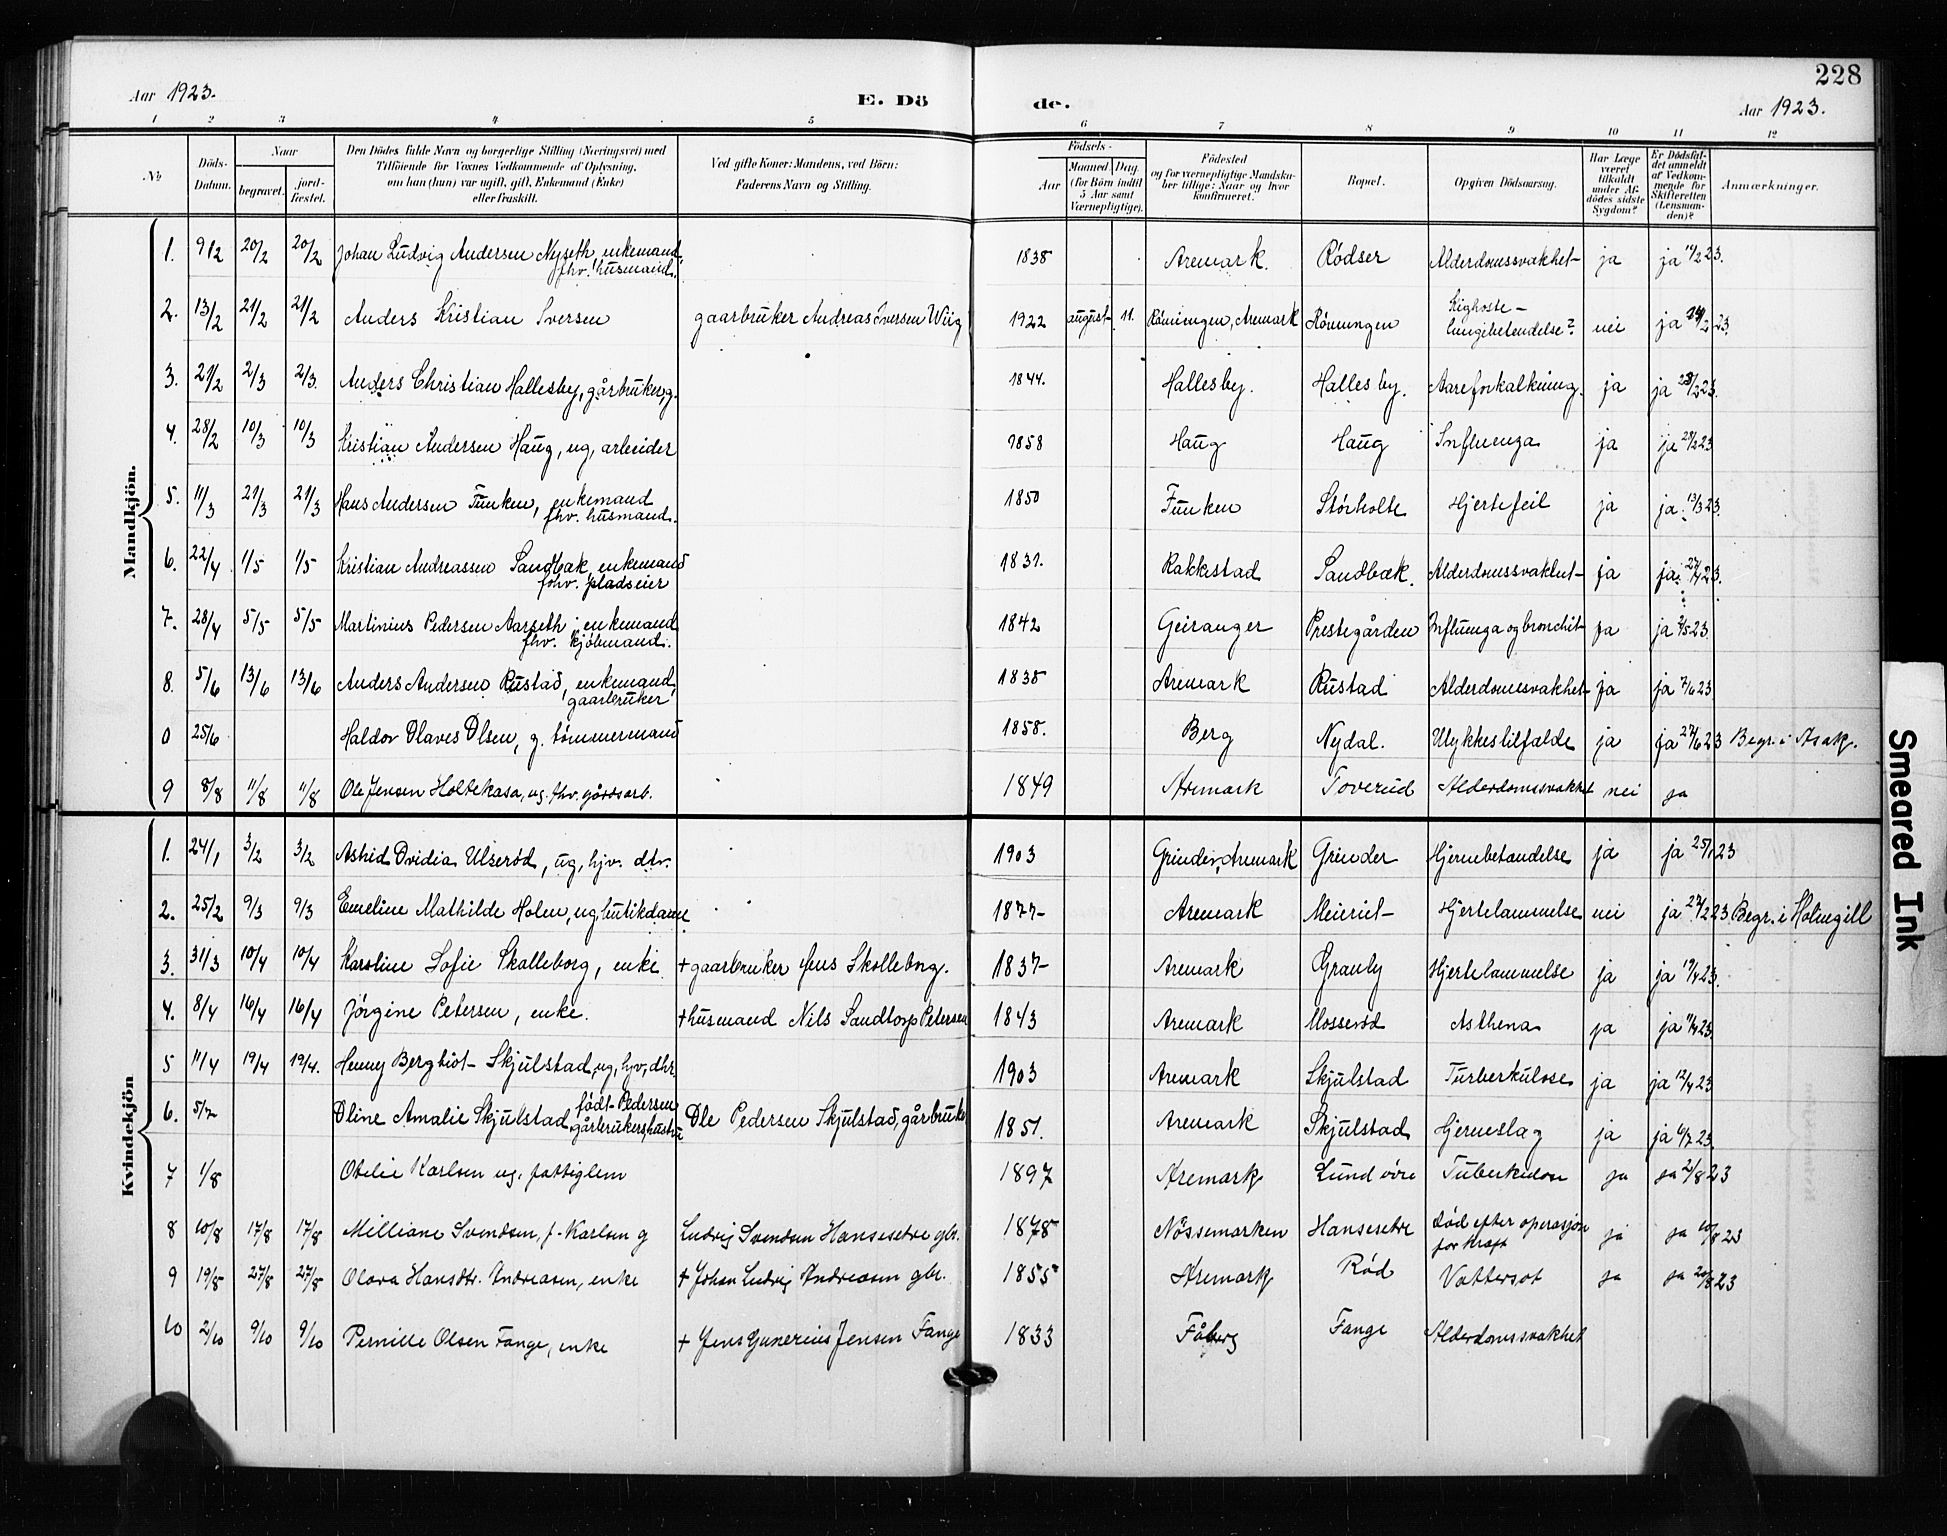 Aar 1923. E. Dö de. 228
Aar 1923.
1 2 3 4 5 6 7 8 9 10 11 12
No
Döds-Datum.
Naar
begravet.
jord-fæstet.
Den Dödes fulde Navn og borgerlige Stilling (Næringsvei) med
Tilföiende for Voxnes Vedkommende af Oplysning,
om han (hun) var ugift, gift, Enkemand (Enke)
eller fraskilt.
Ved gifte Koner: Mandens, ved Börn:
Faderens Navn og Stilling.
Födsels-
Aar
Maaned Dag
(for Börn indtil
5 Aar samt
Værnepligtige).
Födested
og for værnepligtige Mandska-
ber tillige: Naar og hvor
konfirmeret.
Bopæl.
Opgiven Dödsaarsag.
Har Læge
været
tilkaldt
under Af-
dödes sidste
Sygdom?
Er Dödsfal-
det anmeldt
af Vedkom-
mende for
Skifteretten
(Lensman-
den)?
Anmærkninger.
Mandkjön.
1. 9/2 20/2 20/2 Johan Ludvig Andersen Nyseth, enkemand, fhv. husmand. 1838 Aremark. Rødser Alderdomssvakhet ja ja 14/2 23.
2. 13/2 21/2 21/2 Anders Kristian Iversen gaarbruker Andreas Iversen Wiig 1922 august 11. Rönningen, Aremark Rönningen Kighoste - lungebetendelse? nei ja 24/2 23
3. 21/2 2/3 2/3. Anders Christian Hallesby, gårbruker, g. 1844. Hallesby. Hallesby. Aareforkalkning. ja ja 23/2 23.
4. 28/2 10/3 10/3 Kristian Andersen Haug, ug, arbeider 1858 Haug Haug Influenza ja ja 28/2 23
5. 11/3 21/3 21/3 Hans Andersen Funken, enkemand fhv. husmand. 1850 Funken Störholte Hjertefeil ja ja 13/3 23.
6. 22/4 1/5 1/5 Kristian Andreassen Sandbæk, enkemand fhv. pladseier 1831. Rakkestad Sandbæk. Alderdomssvakhet ja ja 27/4 23.
7. 28/4 5/5 5/5 Martinius Pedersen Aarseth, enkemand fhv. kjöbmand. 1842 Geiranger Prestegården Influenza og bronchit ja ja 2/5 23
8. 5/6 13/6 13/6 Anders Andersen Rustad, enkemand, gaarbruker 1838 Aremark Rustad Alderdomssvakhet ja ja 7/6 23
0 25/6 Haldor Olaves Olsen, g. tömmermand 1858. Berg Nydal. Ulykkestilfælde ja ja 27/6 23 Begr. i Asak.
9 8/8 11/8 11/8 Ole Jensen Holtekasa, ug. fhv. gårdsarb. 1849 Aremark Toverud Alderdomssvakhet nei ja
Kvindekjön
1. 24/1 3/2 3/2 Astrid Ovidia Ulserød, ug, hjv. dtr. 1903 Grinder, Aremark Grinder Hjernebetændelse ja ja 25/1 23
2. 25/2 9/3 9/3 Emeline Mathilde Holm, ug, butikdame 1877 Aremark Meieriet Hjertelammelse nei ja 27/2 23 Begr. i Holmegill
3. 31/3 10/4 10/4 Karoline Sofie Skolleborg, enke + gaarbruker Jens Skolleborg. 1837 Aremark Granby Hjertelammelse ja ja 19/4 23.
4. 8/4 16/4 16/4 Jörgine Petersen, enke. + husmand Nils Sandtorp Petersen 1843 Aremark Mosserød Asthena ja ja 11/4 23.
5 11/4 19/4 19/4. Henny Bergliot Skjulstad, ug, hjv, dtr. 1903 Aremark Skjulstad Turberkulose ja ja 12/4 23
6. 5/7 Oline Amalie Skjulstad, født Pedersen gårbrukers hustru Ole Pedersen Skjulstad, gårbruker 1851. Aremark Skjulstad Hjerneslag ja ja 6/7 23.
7 1/8 Otelie Karlsen ug. fattiglem 1897 Aremark Lund övre Tuberkulose ja ja 2/8 23
8 10/8 17/8 17/8 Milliane Svendsen, f. Karlsen g Ludvig Svendsen Hansesetre gbr. 1878 Nössemarken Hansesetre død efter operasjon for kræft ja ja 10/8 23
9 19/8 27/8 27/8 Olava Hansdtr. Andreasen, enke + Johan Ludvig Andreasen gbr. 1855 Aremark Rød Vattersot ja ja 20/8 23
10 2/10 9/10 9/10 Pernille Olsen Fange, enke + Jens Gunerius Jensen Fange 1833 Fåberg Fange Alderdomssvakhet
Smeared Ink